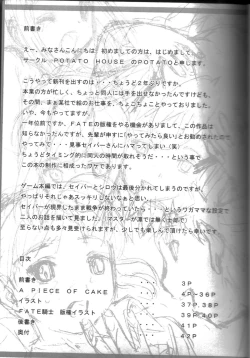 前書き
えー、みなさんこんにちは。初めましての方は、はじめまして。
サークル POTATO HOUSE のPOTATOと申します。
こうやって新刊を出すのは・・・ちょうど2年ぶりですか。
本業の方が忙しく、ちょっと同人には手を出せなかったんですけども、
その間、まぁ某社で絵のお仕事を、ちょこちょことやっておりました。
いや、今もやってますが。
一年位前ですか、FATEの版権をやる機会がありまして、この作品は
知らなかったんですが、先輩が申すに（やってみたら良い）とお勧め
やってみて・・・見事セイバーさんにハマってしまい（笑）
ちょうどタイミング的に間次の時間が取れそうだ・・・という事で
この本の制作に相成ったワケであります。
ゲーム本編では、セイバーとシロウは最後分かれてしまうのですが、
やっぱりそれじゃあスッキリしないのです。なので、
二人のお話を描いて見ました。
至らない点も多々見受けられますが、少しでも楽しんで頂けたら幸いです
目次
前書き 3P
A PIECE OF CAKE 4P-36P
イラスト 37P,38P
FATE騎士 版権イラスト 39P,40P
後書き 41P
奥付 42P